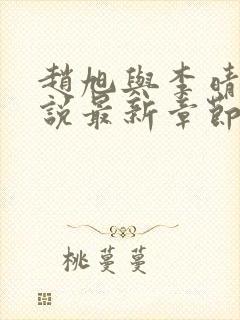 趙旭與李晴
說最新章節
桃蔓蔓